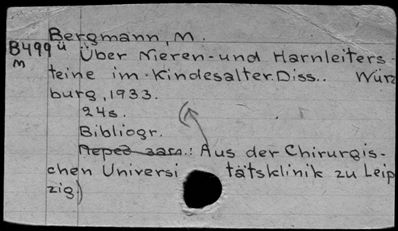 Bergmann, M.
B499 ü
м Über Nieren- und Harnleiters-
teine im Kindesalter. Diss.. Würz
burg, 1933.
24s.
Bibliogr.
Перед загл.: (Aus der Chirurgis-
chen Universi tätsklinik zu Leip
zig.)